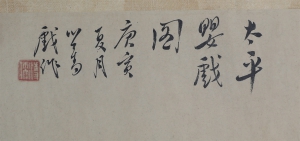 太平
嬰戲
圖
庚寅
夏月
心畬
戲作